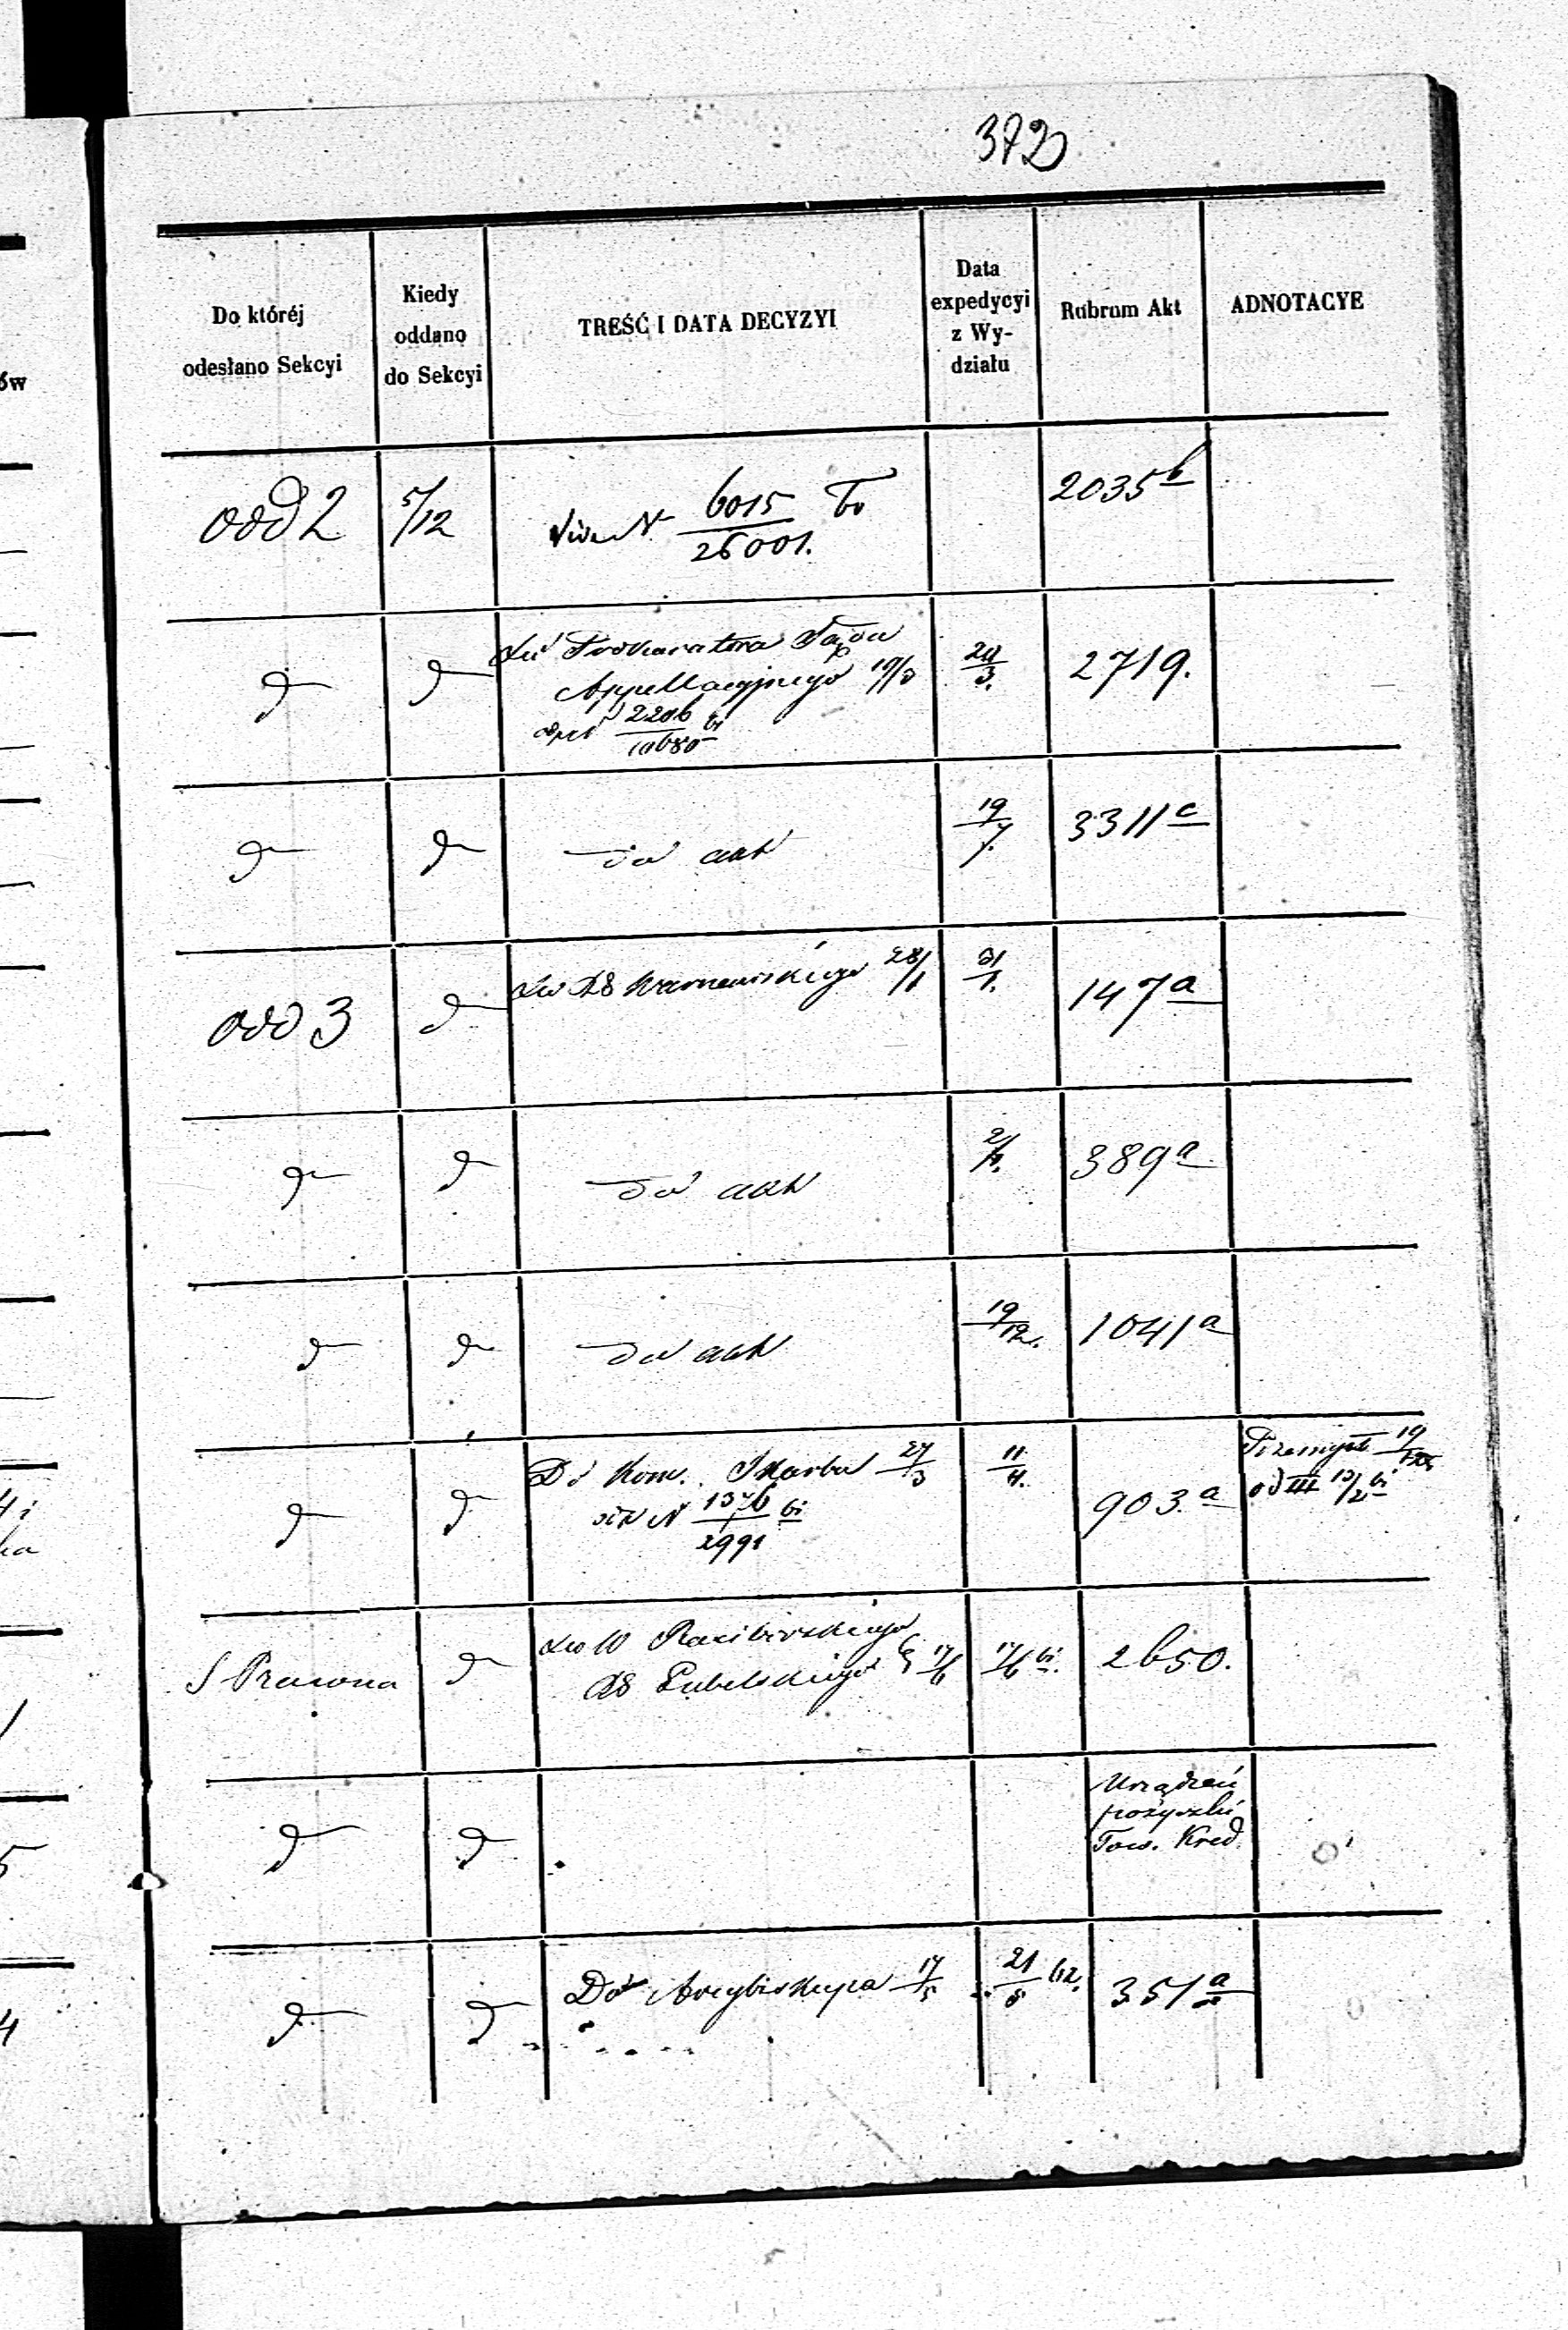 372
Do któréj
odesłano Sekcyi
Kiedy
oddano
do Sekcyi
TREŚĆ I DATA DECYZYI
Data
expedycyi
z Wy-
działu
Rubrum Akt
ADNOTACYE
Odd 2
5/12
Vide N 6015/26001.
2035 b
d
d
Do Prokuratora Sądu
Appellacyjnego 19/3
2206/10680
20/3.
2719.
d
d
do akt
19/7.
3311 c
Odd 3
d
Do Warszawskiego 28/1
31/1.
147 a
d
d
do akt
2/4.
389 a
d
d
do akt
19/12.
1041 a
d
d
Do Kom. Skarbu 27/3
N 1376/2991
11/4.
903. a
Przemysł 19
od III 13/2
S Prawna
d
Do W Raciborskiego
Lubelskiego 17/6
17/6
2650.
d
d
Urządzeń
pożyczki
Tow. Kred
d
d
Do Arcybiskupa 17/5
21/5 62.
351 a